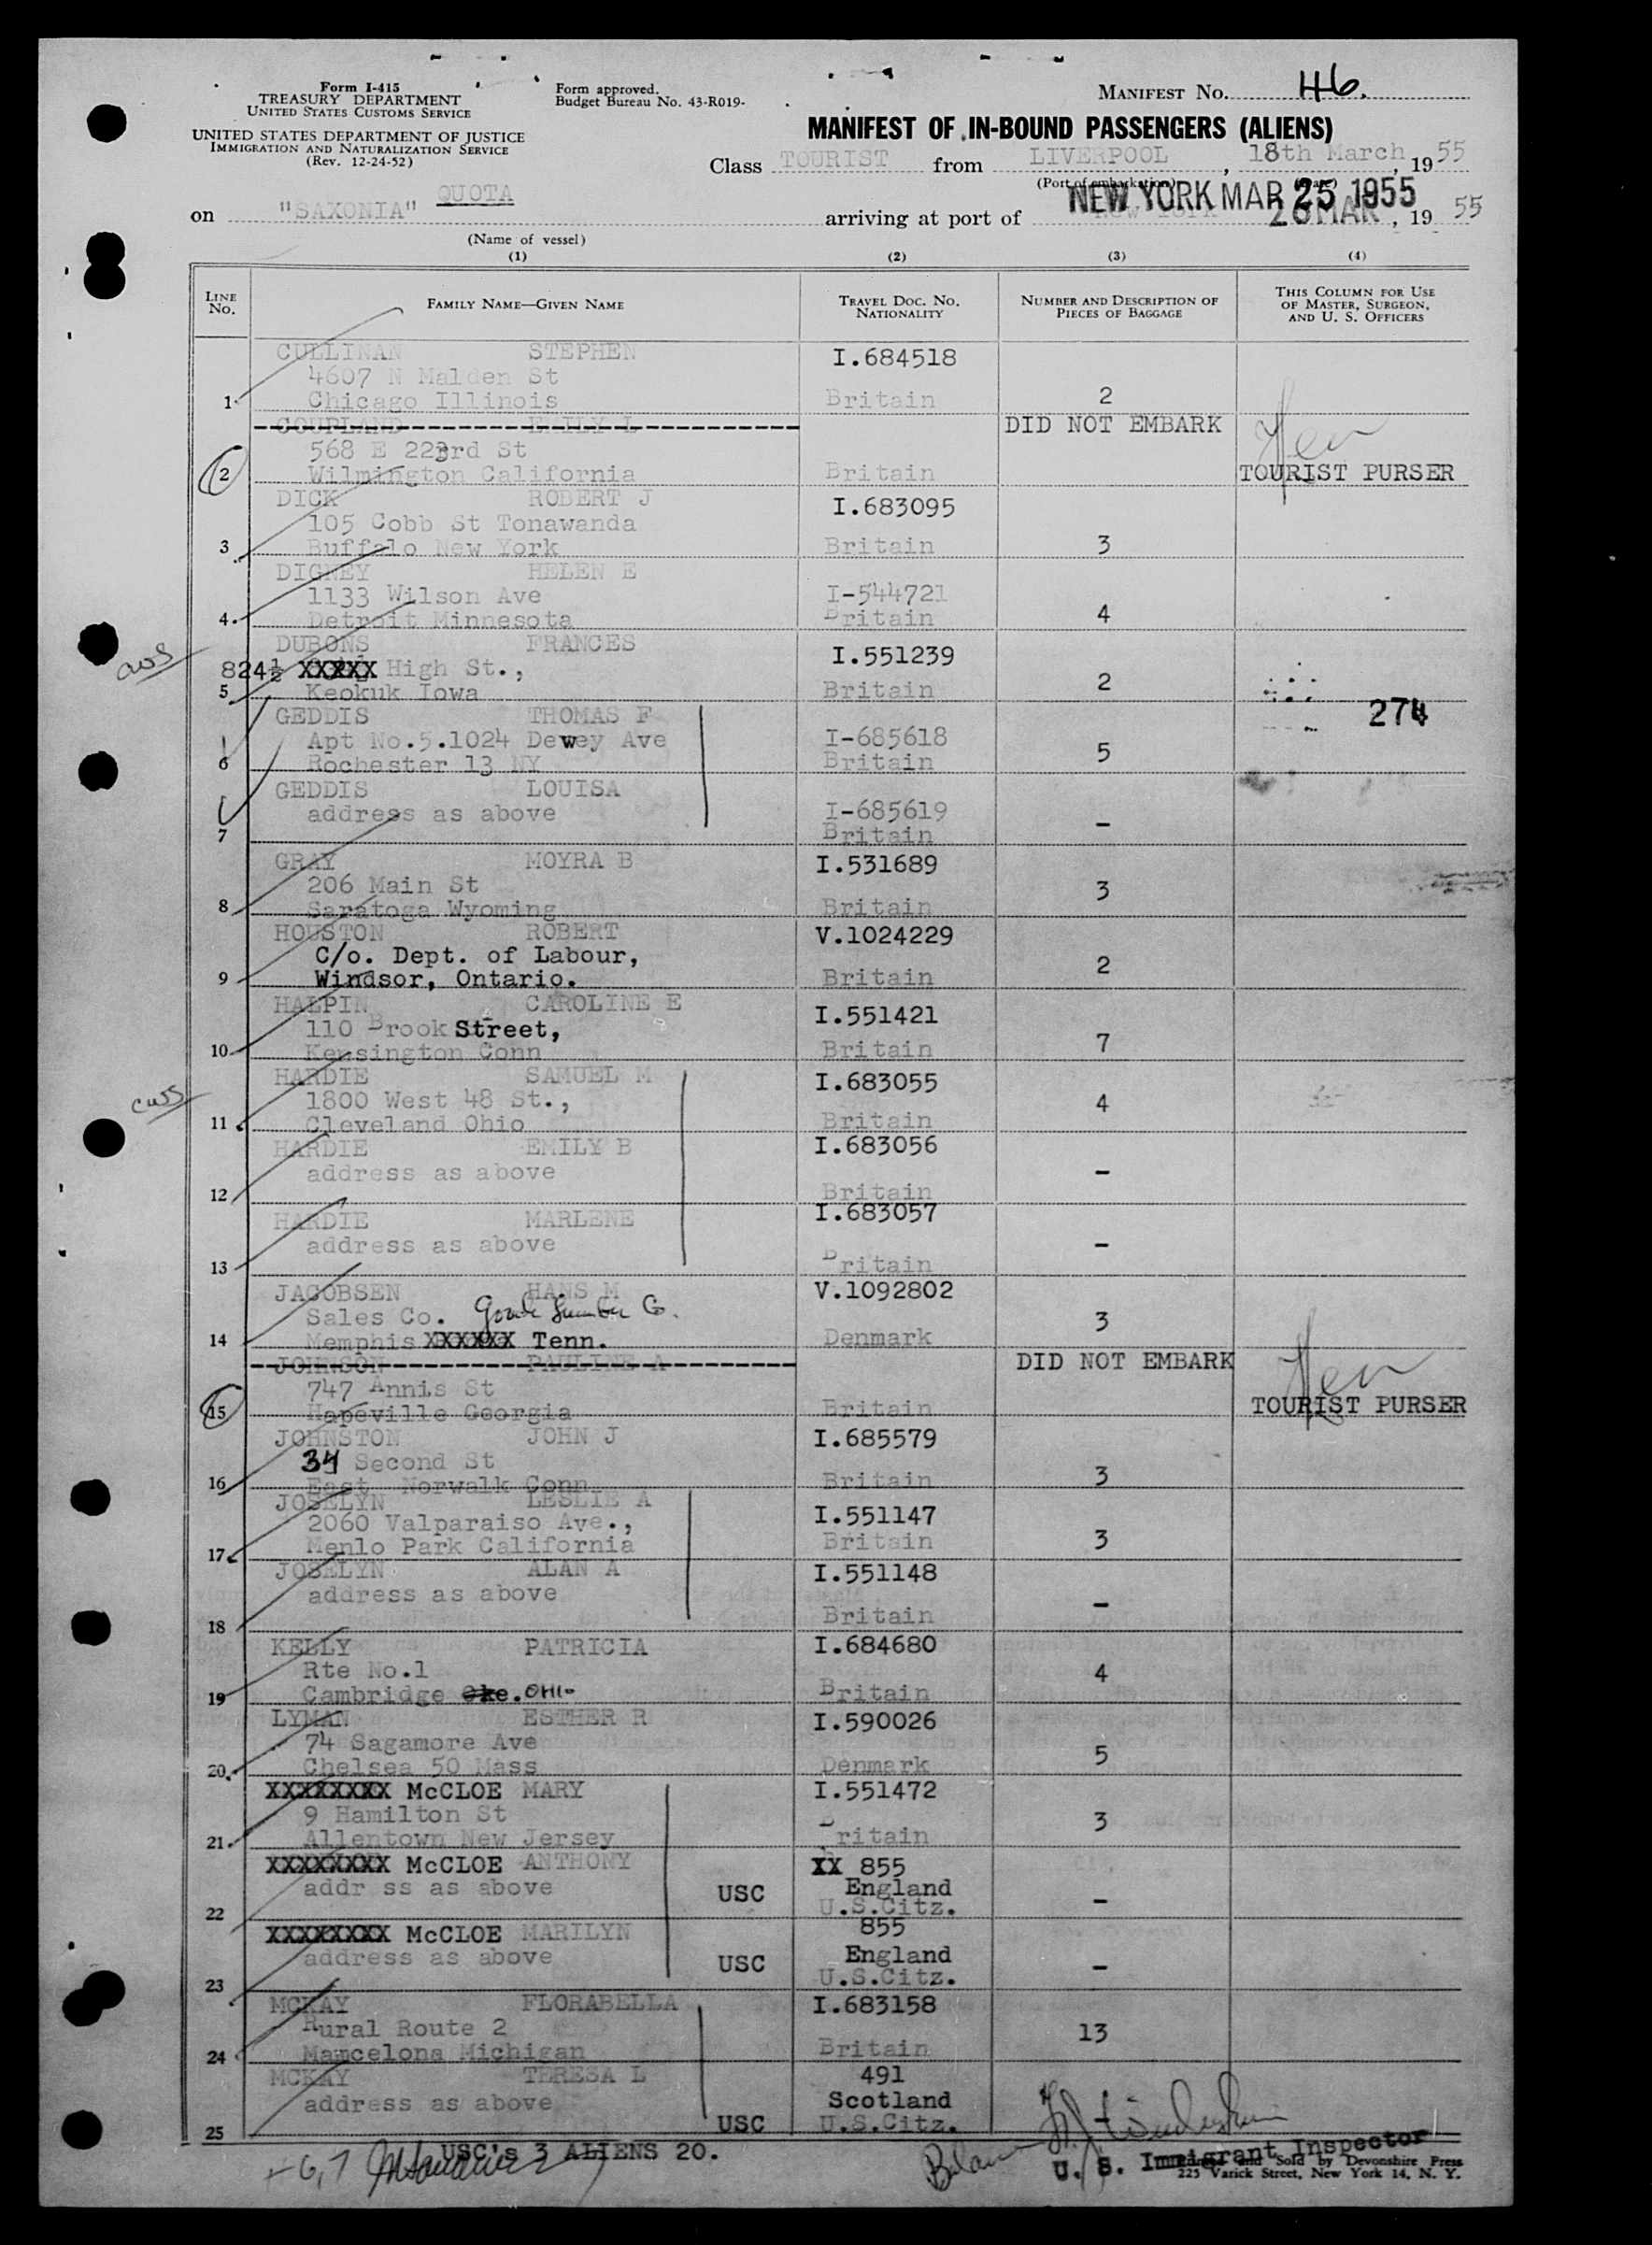 Form I-415
TREASURY DEPARTMENT
UNITED STATES CUSTOMS SERVICE
UNITED STATES DEPARTMENT OF JUSTICE
IMMIGRATION AND NATURALIZATION SERVICE
(Rev. 12-24-52)
Form approved.
Budget Bureau No. 43-R019-
MANIFEST NO. 46.
MANIFEST OF IN-BOUND PASSENGERS (ALIENS)
Class TOURIST from LIVERPOOL, 18th March, 1955
(Port of embarkation)
QUOTA
on "SAXONIA" arriving at port of NEW YORK MAR 25 1955, 19 55
(Name of vessel)
(1) (2) (3) (4)
LINE NO. FAMILY NAME—GIVEN NAME TRAVEL DOC. NO. NATIONALITY NUMBER AND DESCRIPTION OF PIECES OF BAGGAGE THIS COLUMN FOR USE OF MASTER, SURGEON, AND U. S. OFFICERS
CULLINAN STEPHEN I.684518
4607 N Malden St
1 Chicago Illinois Britain 2
COUPLAND EMILY L DID NOT EMBARK
568 E 223rd St
2 Wilmington California Britain TOURIST PURSER
DICK ROBERT J I.683095
105 Cobb St Tonawanda
3 Buffalo New York Britain 3
DIGNEY HELEN E
1133 Wilson Ave I-544721
4 Detroit Minnesota Britain 4
DUBONS FRANCES I.551239
824½ XXXXX High St.,
5 Keokuk Iowa Britain 2
274
GEDDIS THOMAS F
Apt No.5.1024 Dewey Ave I-685618
6 Rochester 13 NY Britain 5
GEDDIS LOUISA
address as above I-685619
7 Britain -
GRAY MOYRA B I.531689
206 Main St
8 Saratoga Wyoming Britain 3
HOUSTON ROBERT V.1024229
C/o. Dept. of Labour,
9 Windsor, Ontario. Britain 2
HALPIN CAROLINE E I.551421
110 Brook Street,
10 Kensington Conn Britain 7
HARDIE SAMUEL M I.683055
1800 West 48 St.,
11 Cleveland Ohio Britain 4
HARDIE EMILY B I.683056
address as above
12 Britain -
HARDIE MARLENE I.683057
address as above
13 Britain -
JACOBSEN HANS M V.1092802
Sales Co.
14 Memphis XXXXXX Tenn. Denmark 3
JOHNSON PAULINE A DID NOT EMBARK
747 Annis St
15 Hapeville Georgia Britain TOURIST PURSER
JOHNSTON JOHN J I.685579
34 Second St
16 East Norwalk Conn Britain 3
JOSELYN LESLIE A I.551147
2060 Valparaiso Ave.,
17 Menlo Park California Britain 3
JOSELYN ALAN A I.551148
address as above
18 Britain -
KELLY PATRICIA I.684680
Rte No.1
19 Cambridge Oke. OHIO Britain 4
LYMAN ESTHER R I.590026
74 Sagamore Ave
20 Chelsea 50 Mass Denmark 5
XXXXXXXX McCLOE MARY I.551472
9 Hamilton St
21 Allentown New Jersey ritain 3
XXXXXXXX McCLOE ANTHONY XX 855
addr ss as above USC England
22 U.S.Citz. -
XXXXXXXX McCLOE MARILYN 855
address as above USC England
23 U.S.Citz. -
MCKAY FLORABELLA I.683158
Rural Route 2
24 Mancelona Michigan Britain 13
MCKAY TERESA L 491
address as above Scotland
25 USC U.S.Citz. -
USC's 3 ALIENS 20.
U. S. Immigrant Inspector
Sold by Devonshire Press
225 Varick Street, New York 14, N. Y.